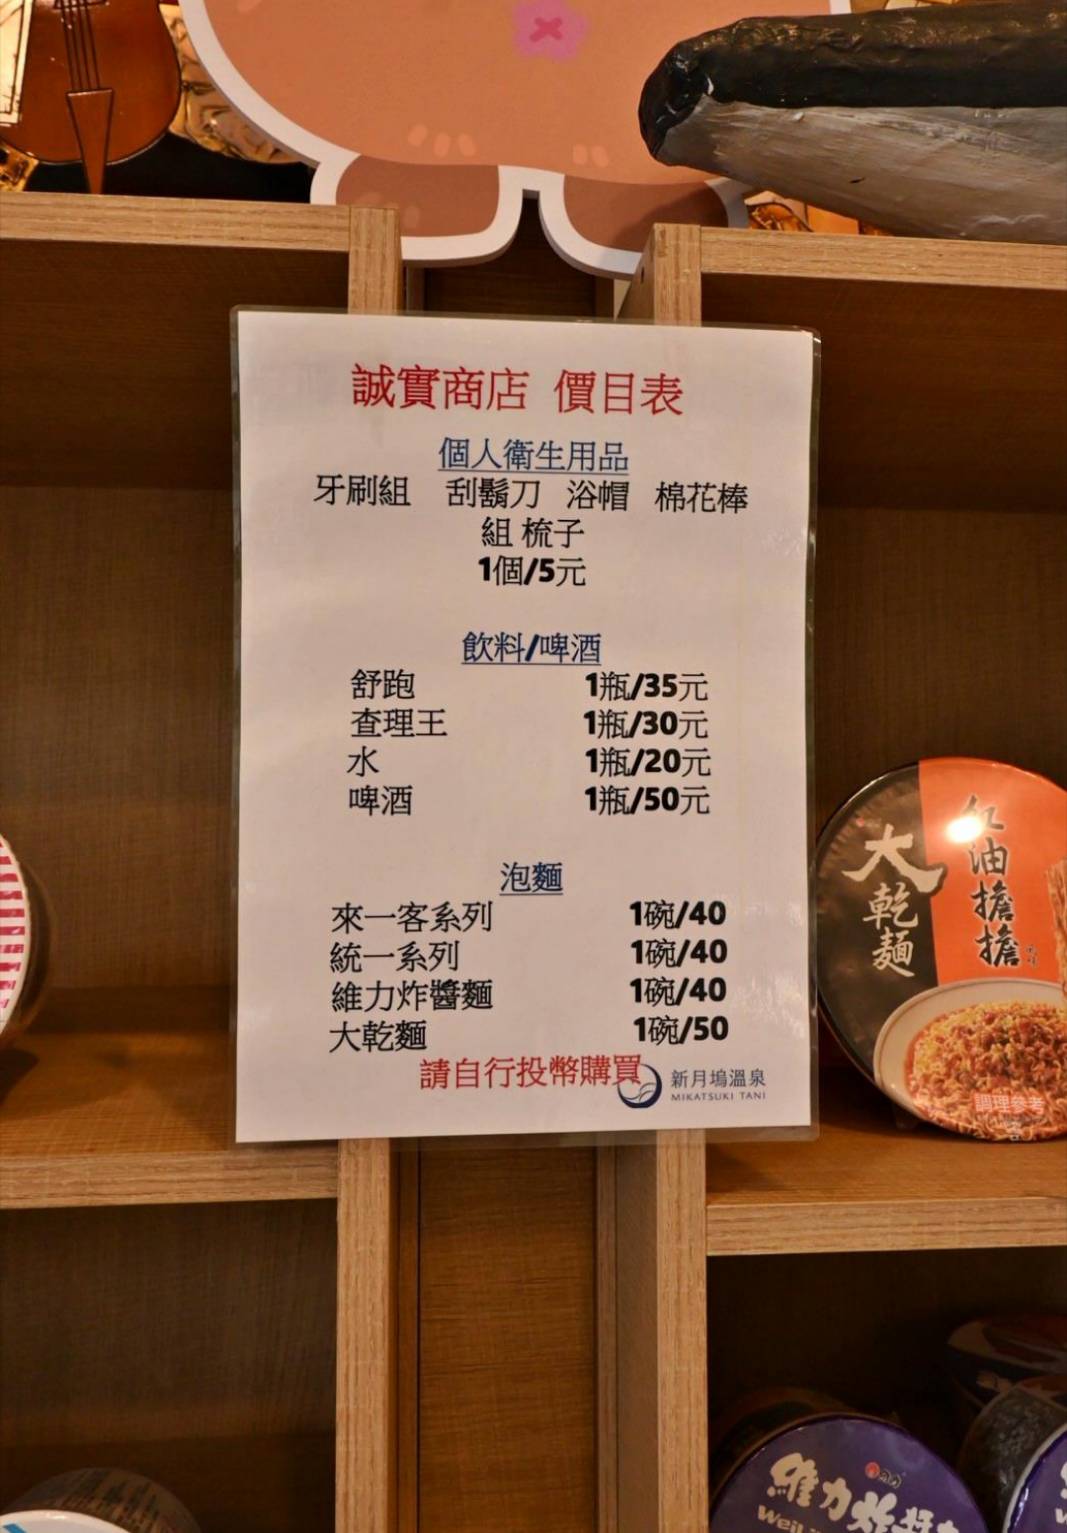 誠實商店 價目表
個人衛生用品
牙刷組 刮鬍刀 浴帽 棉花棒
組 梳子
1個/5元
飲料/啤酒
舒跑 1瓶/35元
查理王 1瓶/30元
水 1瓶/20元
啤酒 1瓶/50元
泡麵
來一客系列 1碗/40
統一系列 1碗/40
維力炸醬麵 1碗/40
大乾麵 1碗/50
請自行投幣購買
新月塢溫泉
MIKATSUKI TANI
大乾麵
紅油擔擔
調理參考
維力炸醬